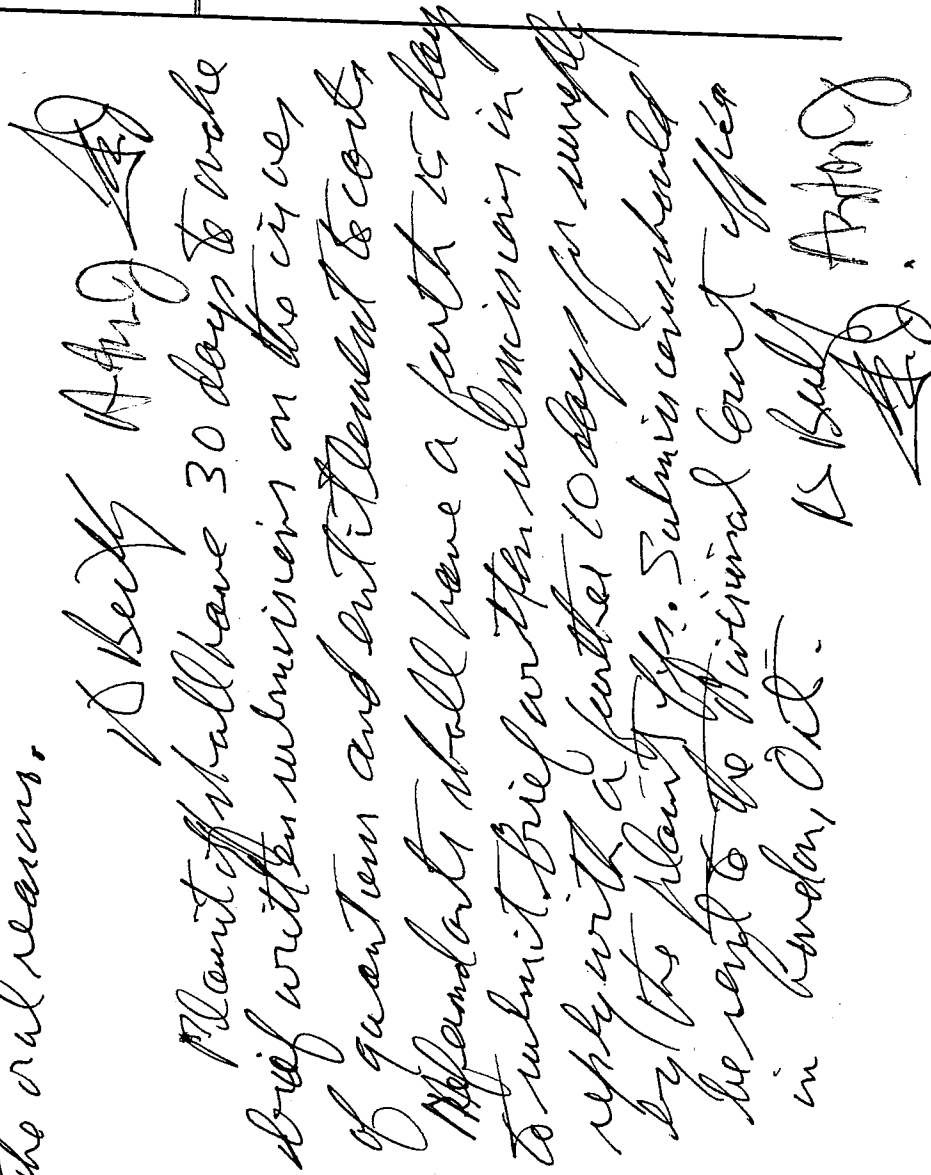 the oral reasons.
Plaintiff shall have 30 days to make
brief written submissions on the issues
of quantum and entitlement to costs
Defendants shall have a further 15 days
to submit brief written submissions in
reply with a further 10 days for surreply
by the plaintiffs. Submissions should
be sent to the Divisional Court office
in London, Ont.